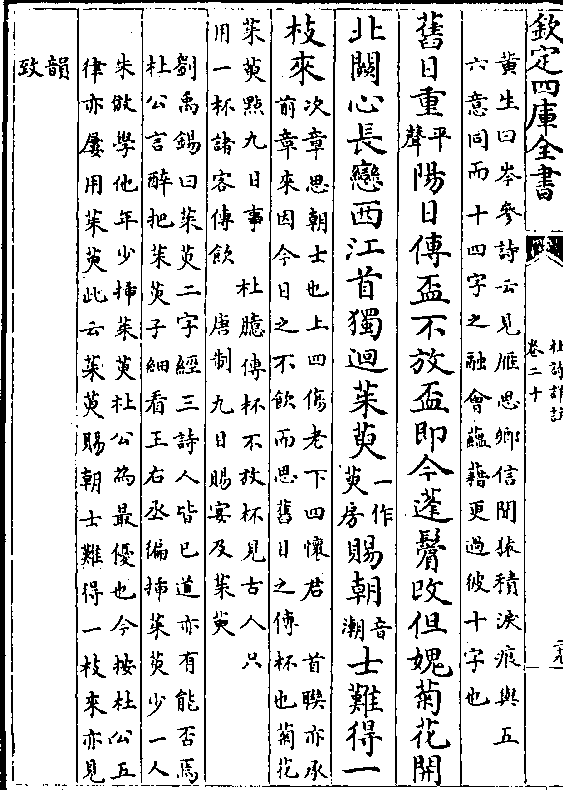 欽定四庫全書
杜詩詳註
卷二十
黄生曰岑參詩云見雁思鄉信聞猿積淚痕與五
六意同而十四字之融會蘊藉更過彼十字也
舊日重平聲陽日傳盃不放盃即今蓬鬢改但媿菊花開
北闕心長戀西江首獨迴茱萸一作萸房賜朝音潮士難得一
枝來次章思朝士也上四傷老下四懷君 首聯亦承
前章來因今日之不飲而思舊日之傳杯也菊花
茱萸點九日事 杜臆傳杯不放杯見古人只
用一杯諸客傳飲 唐制九日賜宴及茱萸
劉禹錫曰茱萸二字經三詩人皆已道亦有能否焉
杜公言醉把茱萸子細看王右丞徧插茱萸少一人
朱倣學他年少揷茱萸杜公為最優也今按杜公五
律亦屢用茱萸此云茱萸賜朝士難得一枝來亦見
韻致